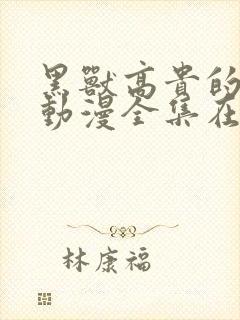 黑獸高貴的
動漫全集在
林康福